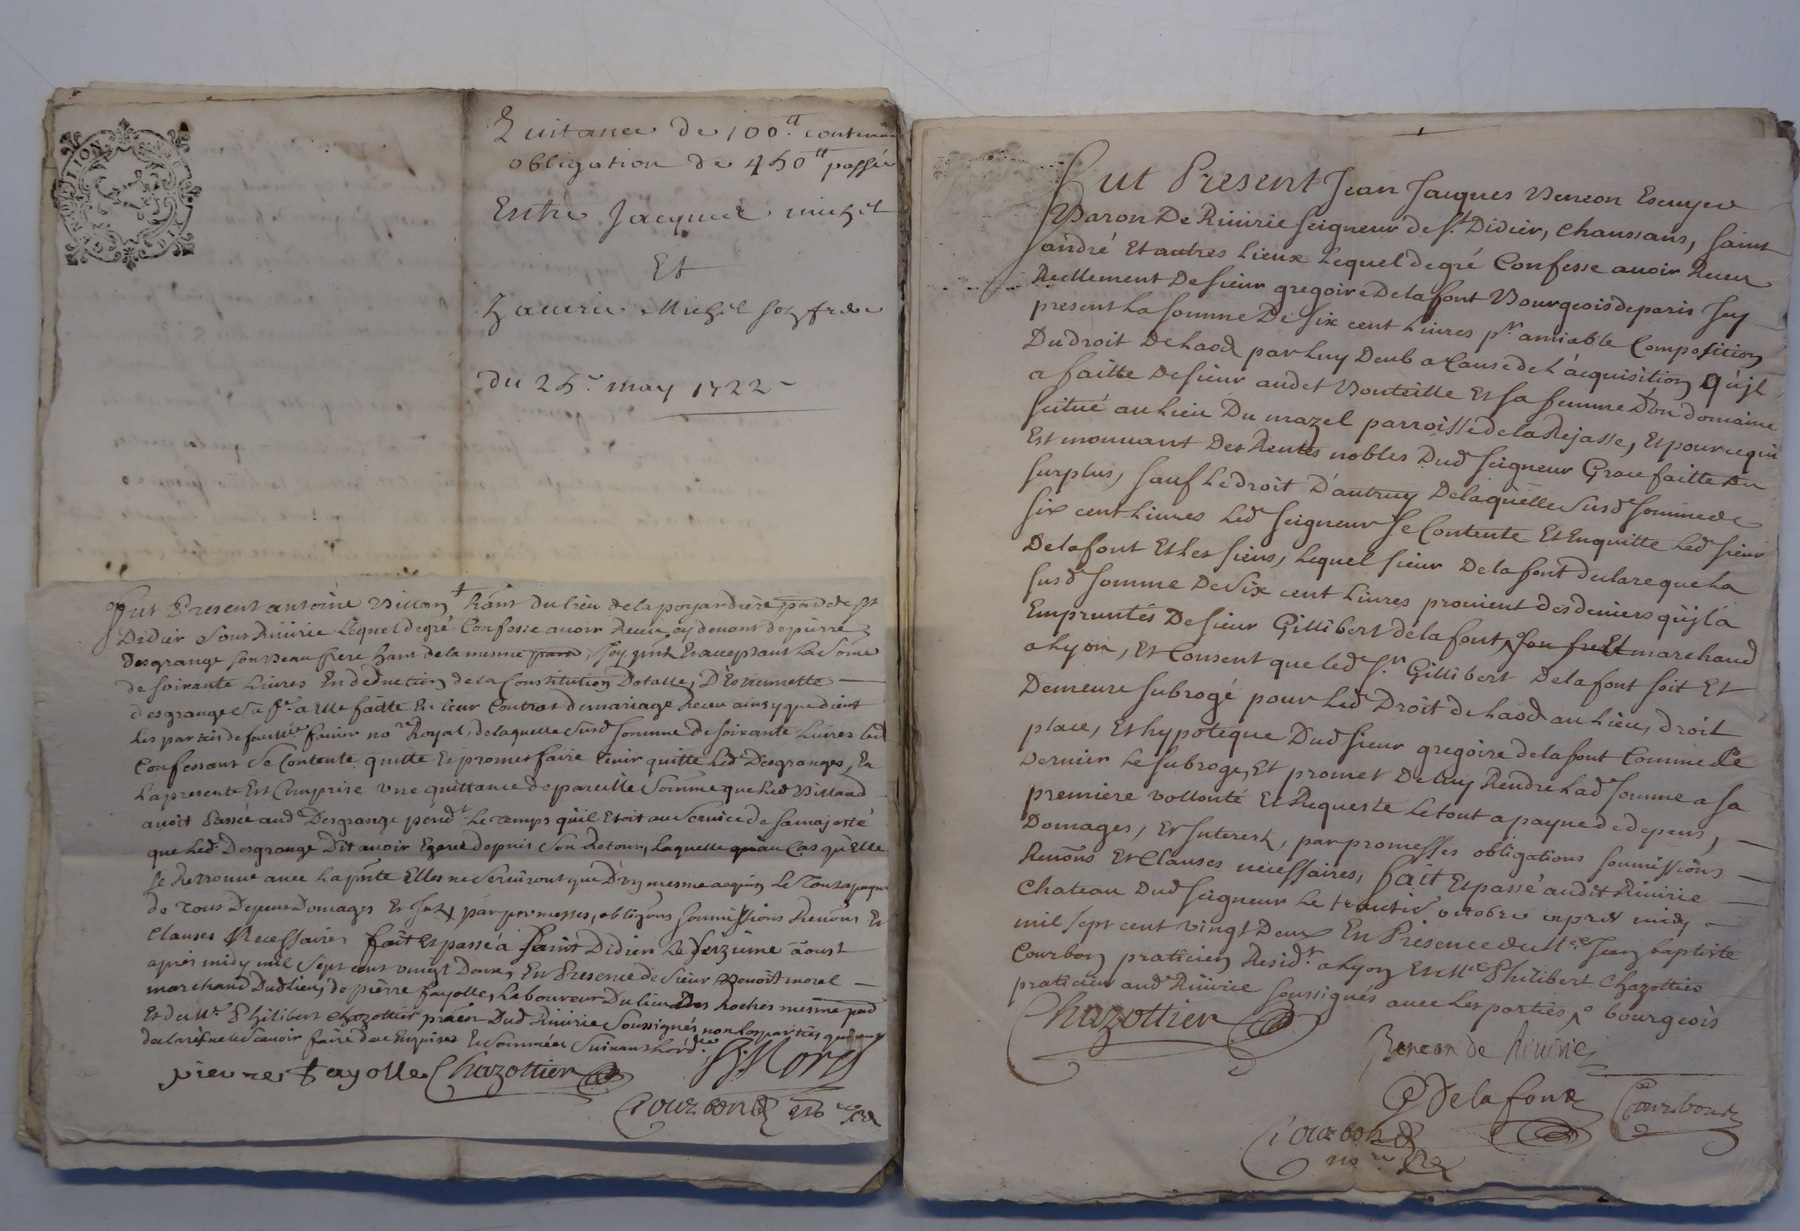 GENERALITE DE LYON
Quitance de 100.tt contenant
obligation de 450tt passée
Entre Jacques michel
Et
Zacarie Michel son frere
du 25.e may 1722
Fut Present antoine Villon hant du lieu de la poyardière parr de St
Didier Sous Riuirie Lequel de gré Confesse auoir Receu cy deuant de pierre
desgrange son beau frere hant de la mesme parr, Icy pnt Et acceptant La Some
de soixante Liures En deduction de la Constitution Dotalle, D'Estiennette
desgrange Sa fe a Elle faitte En leur Contrat de mariage Receu ainsy que dient
Les parties de feu Me Favier nore Royal, de laquelle Susd Somme de soixante Liures led
Confessant Se Contente quitte Et promet faire tenir quitte Led Desgranges, En
La presente Est Comprise Vne quittance de pareille Somme que Led Villand
auoit Passée aud Desgrange pendt Le temps qu'il Etoit au Seruice de Sa majesté
que Led. Desgrange Dit auoir Egaré depuis Son Retour, Laquelle au Cas qu'Elle
Se Retrouue auec La pnte Elles ne Seruiront que D'vn mesme acquis Le Tout a payne
de tous Depens Domages Et Intz par promesses, obligaons Soumissions Renons Et
Clauses Necessaires fait Et passé à Saint Didier Le Seizieme aoust
apres midy mil Sept cent vingt Deux, En Presence de Sieur Benoist morel
marchand Dud lieu, de pierre fayolle, Laboureur Du lieu Des Roches mesme parr
Et de Me Philibert Chazottier praen Dud Riuirie Soussignés non Les parties qui ont
declaré ne Scauoir faire de ce Enquises Et Sommées Suiuant Lord.ce
pierre fayolle Chazottier B Morel
Courbon nore Ral
Fut Present Jean Jacques Beneon Escuyer
Baron De Riuirie Seigneur de St. Didier, Chaussans, Saint
andré Et autres Lieux Lequel de gré Confesse auoir Receu
Reellement De Sieur gregoire Delafont Bourgeois de paris Icy
present La Somme De Six cent Liures pr amiable Composition
Du droit De Laod par Luy Deub a Cause de L'acquisition qu'jl
a faitte De Sieur andet Bouteille Et Sa femme D'un domaine
Scitué au Lieu Du mazel parroisse de la Rejasse, Et pour ce qui
Est mouuant Des Rentes nobles Dud Seigneur Grace faitte Du
surplus, Sauf Le droit D'autruy De laquelle Susde Somme de
Six cent Liures Led Seigneur Se Contente Et En quitte Led Sieur
Delafont Et Les Siens, Lequel Sieur Delafont declare que La
Susd Somme De Six cent Liures prouient des deniers qu'jl a
Empruntés De Sieur Gillibert delafont son frere marchand
a Lyon, Et Consent que led Sr Gillibert Delafont soit Et
Demeure Subrogé pour Led Droit de Laod au Lieu, droit
place, Et hypoteque Dud Sieur gregoire delafont Comme Ce
dernier Le Subroge, Et promet De Luy Rendre Lade Somme a Sa
premiere Vollonté Et Requeste Le tout a payne de depens,
Domages, Et Interest, par promesses obligations Soumissions
Renons Et Clauses necessaires, fait Et passé audit Riuirie
Chateau Dud Seigneur Le octobre apres midy
mil Sept cent vingt Deux En Presence de Me Jean baptiste
Courbon praticien Residt a Lyon Et Me Philibert Chazottier
praticien aud Riuirie Soussignés auec Les parties bourgeois
Chazottier
Beneon de Riuirie
G Delafont Courbon
Courbon
nore Ral